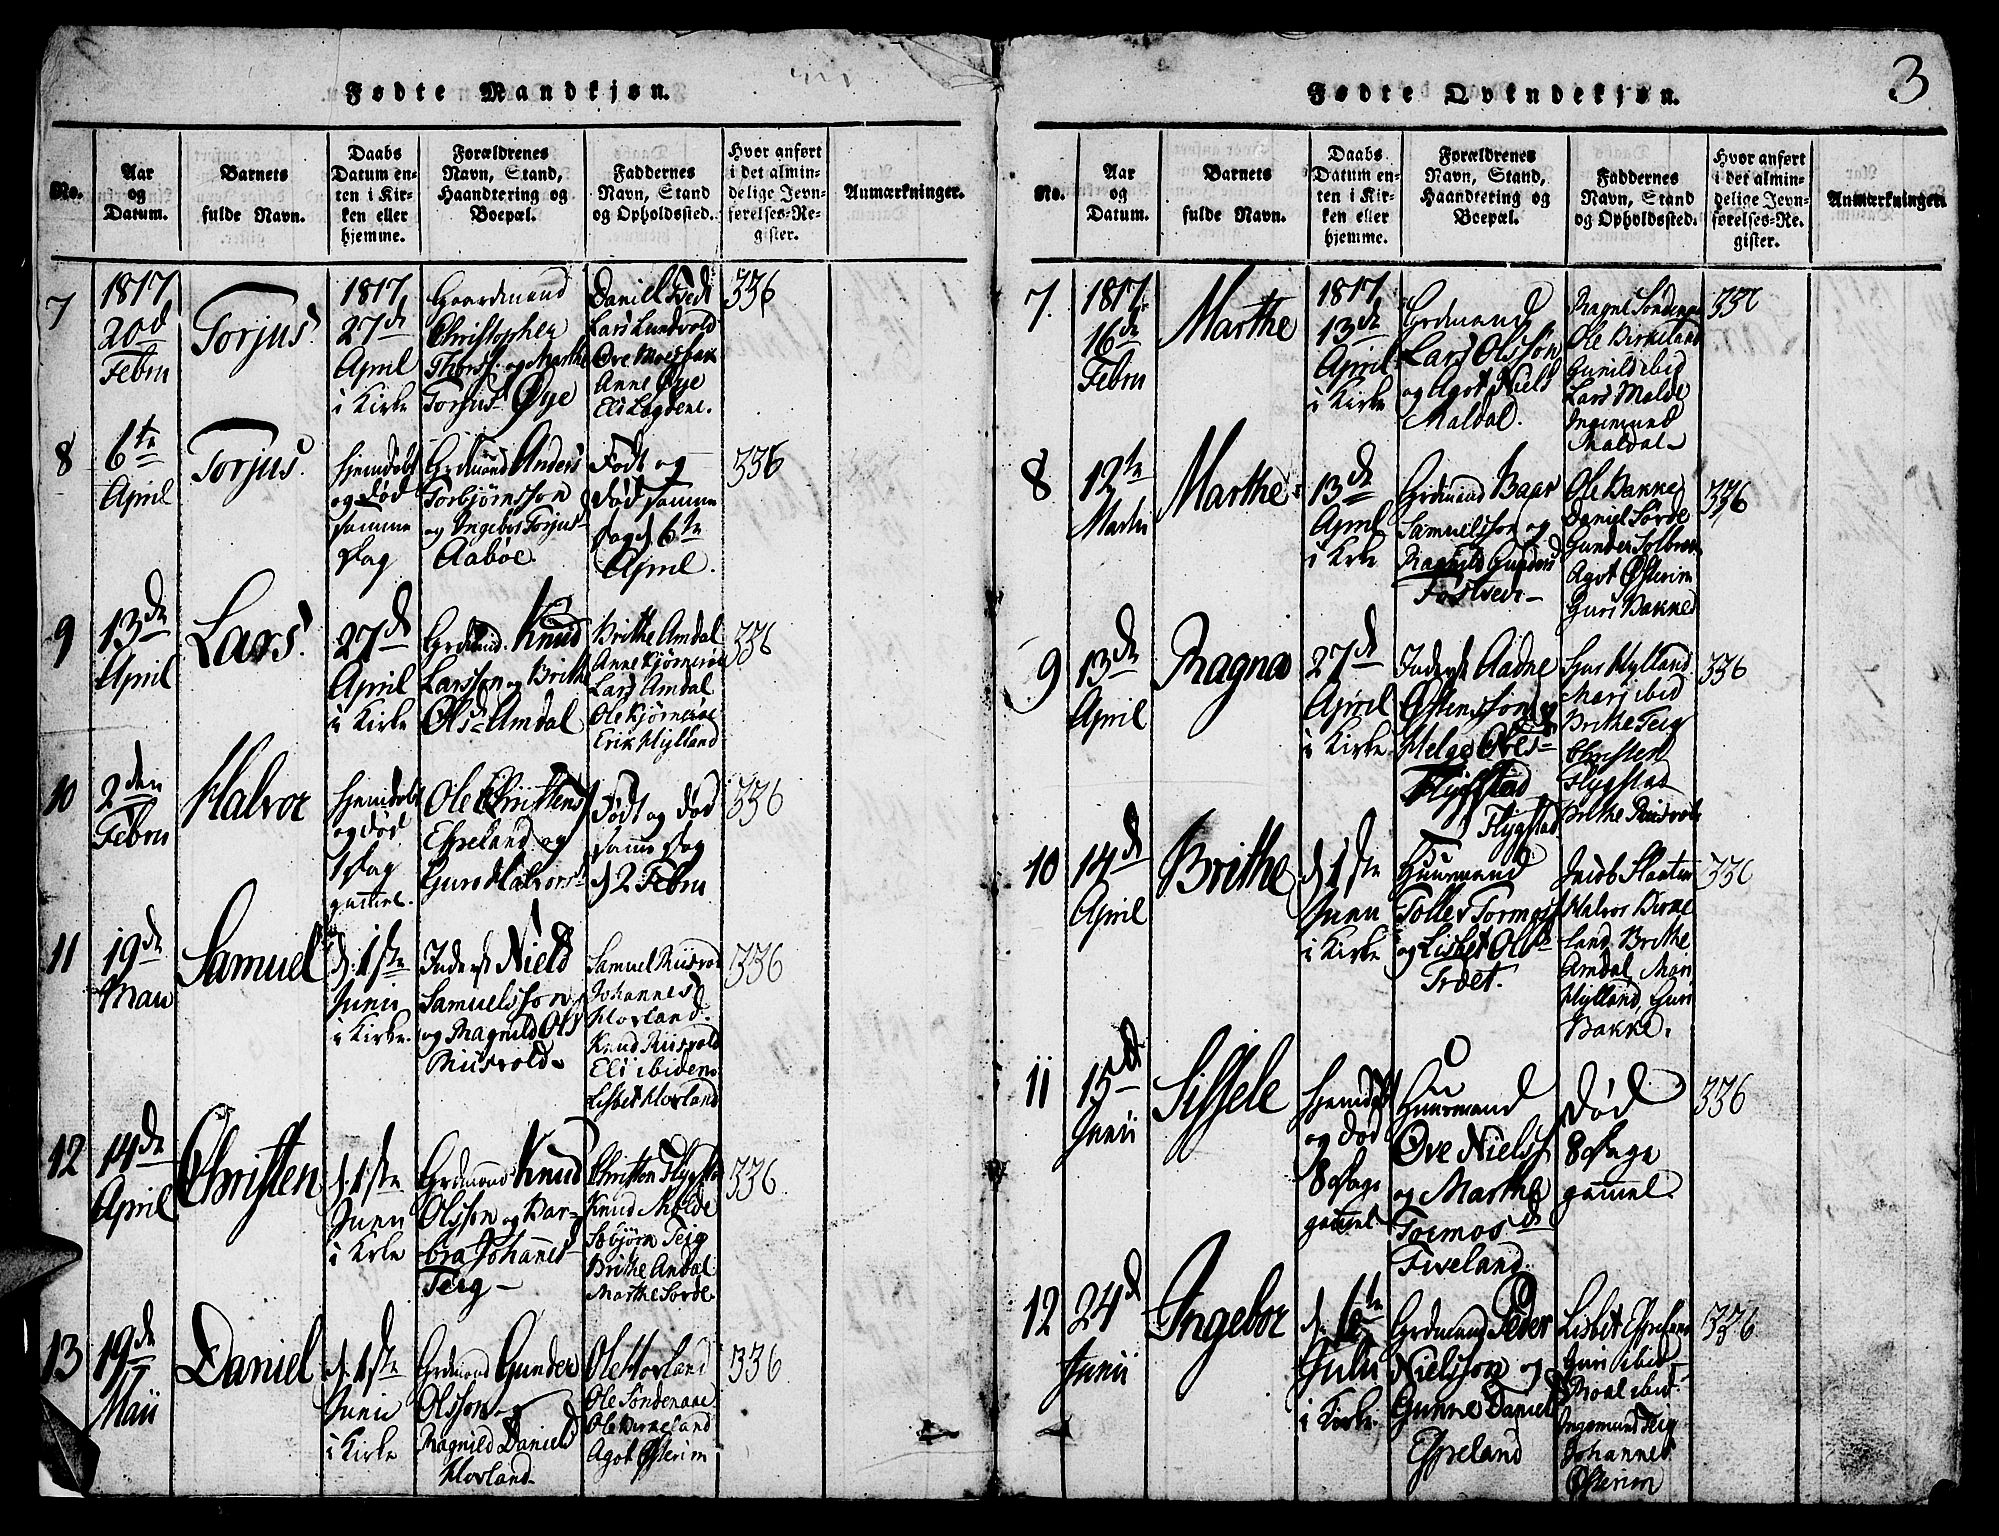 Fødte Mandkjøn.
No.
Aar
og
Datum.
Barnets
fulde Navn.
Daabs
Datum en-
ten i Kir-
ken eller
hjemme.
Forældrenes
Navn, Stand,
Haandtering og
Boepæl.
Faddernes
Navn, Stand
og Opholdssted.
Hvor anført
i det almin-
delige Jevn-
førelses-Re-
gister.
Anmærkninger.
7
1817
20d
Febru
Torjus.
1817
27de
April
i Kirke
Gaardmand
Christopher
Thorss. og Marthe
Torjusd. Øye
Daniel
Lars Lundvold
Ove
Anne Øye
Eli Løgdene.
336
8
6te
April
Torjus.
hjemdøbt
og død
samme
Dag
Grdmand Anders
Torbjørnsson
og Ingebor Torjus-
Aabøe.
Født og
død samme
Dag d. 6te
April.
336
9
13de
April
Lars.
27de
April
i Kirke
Grdmand. Knud
Larsson og Brithe
Olsd. Amdal
Brithe Amdal
Anne Kjørnerøe
Lars Amdal
Ole Kjørnerøe
Erik Hylland
336
10
2den
Febru
Halvor
hjemdøbt
og død
1 Dag
gammel.
Ole Christens
Espeland og
Guro Halvorsd
Født og død
samme Dag
d. 2 Febru
336
11
19de
Maii
Samuel
d. 1ste
Junii
i Kirke.
Inderst Niels
Samuelsson
og Ragnild Ols
Riisvold.
Samuel Riisvold
Johannes
Hovland.
Knud Riisvold
Eli ibidem
Lisbet Hovland
336
12
14de
April
Christen
d. 1ste
Junii
i Kirke
Grdmand Knud
Olsson og Bar-
bra Johannes-
Teig
Christen Flygstad
Knud Molde
Asbjørn Teig
Brithe Amdal
Marthe Sørde.
336
13
19de
Maii
Daniel
d. 1ste
Junii
i Kirke
Grdmand Gunder
Olsson og
Ragnild Daniels
Hovland.
Ole Hovland
Ole Søndenaae
Ole Birkeland
Agot Østerim
336
3
Fødte Qvindekjøn.
No.
Aar
og
Datum.
Barnets
fulde Navn.
Daabs
Datum en-
ten i Kir-
ken eller
hjemme.
Forældrenes
Navn, Stand,
Haandtering og
Boepæl.
Faddernes
Navn, Stand
og Opholdssted.
Hvor anført
i det almin-
delige Jevn-
førelses-Re-
gister.
Anmærkninger.
7.
1817.
16de
Febru
Marthe
1817.
13de
April
i Kirke
Grdmand
Lars Olsson
og Agot Niels
Maldal.
Ragne Søndenaae
Ole Birkeland
Gunild ibid
Lars Malde
Ingemund
Maldal
336
8
12te
Martii
Marthe
13de
April
i Kirke
Grdmand Baar
Samuelsson og
Ragnild Gunders
Fostveds
Ole Bakke
Daniel Sørde
Gunder
Agot Østerim
Guri Bakke
336
9
13de
April
Ragna
27de
April
i Kirke
Inderst Aadne
Østensson og
Helga Ols-
Flygstad
Hylland
Mari ibid
Brithe Teig
Christen
Flygstad
Brithe Riisvold
336
10
14d
April
Brithe
d. 1ste
Junii
i Kirke
Flygstad
Huusmand
Tollev Tormos
og Lisbet Olsd
Trået.
Jacob
Halvor Birke
land. Brithe
Amdal Mari
Hylland, Guri
Bakke.
336
11
15d
Junii
Sissele
hjemdøbt
og død
8 Dage
gammel
Huusmand
Ove Nielss
og Marthe
Tormosd
Fiveland.
Død
8 Dage
gammel.
336
12
24d
Junii
Ingebor
d. 6te
Julii
i Kirke
Grdmand Peder
Nielsson og
Gunne Daniels
Espeland
Lisbet Espeland
Guri ibid
Roal ibid.
Ingemund Teig
Johannes
Østerim
336